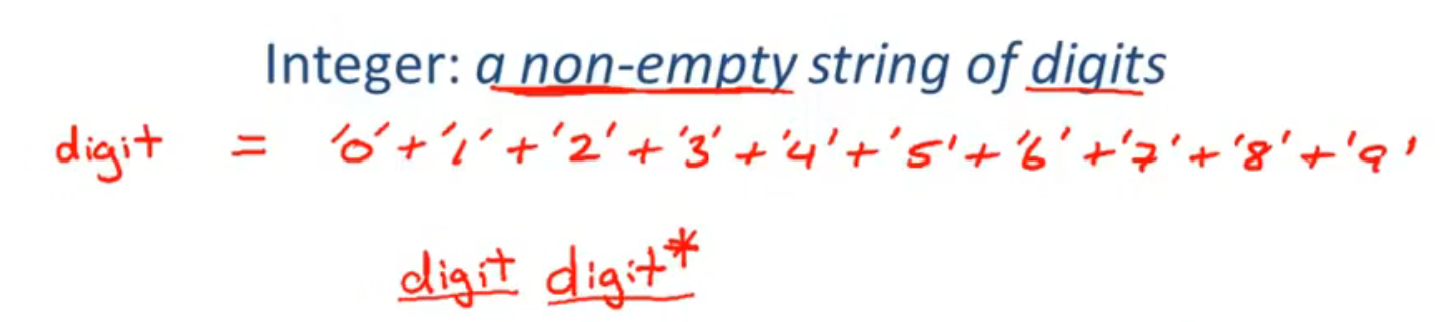 Integer: a non-empty string of digits
digit = '0' + '1' + '2' + '3' + '4' + '5' + '6' + '7' + '8' + '9'
digit digit*